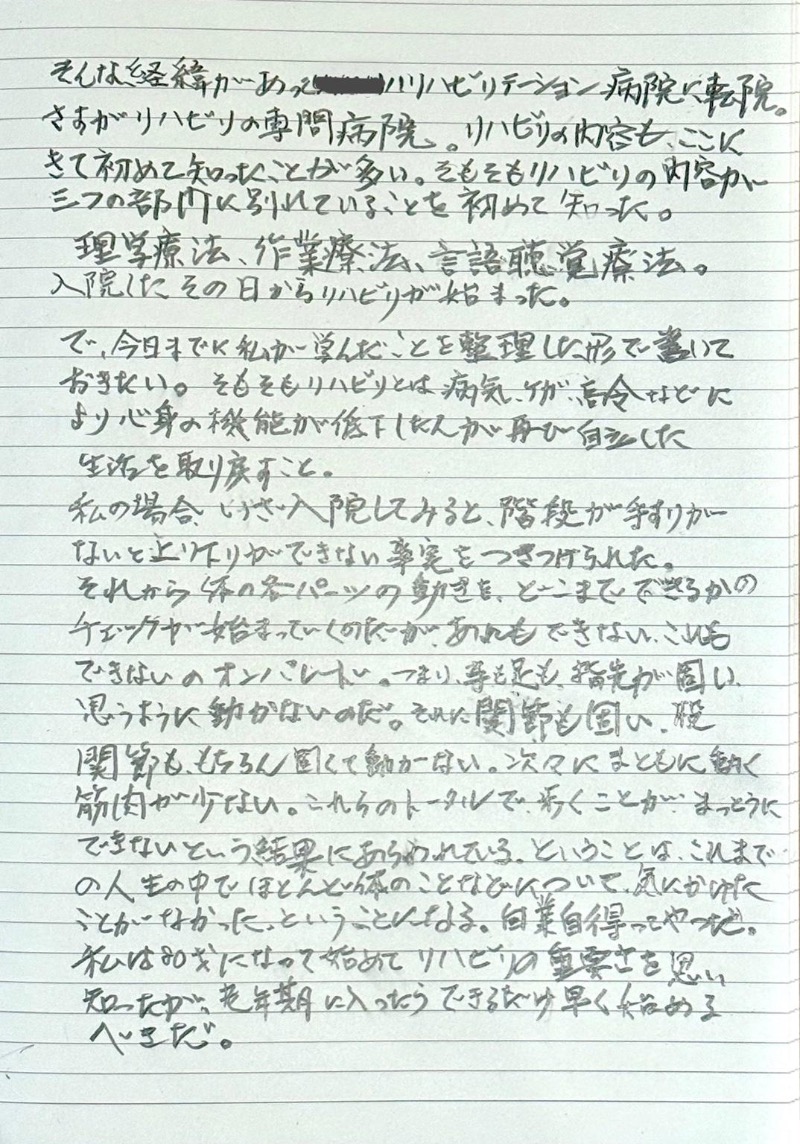 そんな経緯があってリハビリテーション病院に転院。
さすがリハビリの専門病院。リハビリの内容も、ここに
きて初めて知ったことが多い。そもそもリハビリの内容が
三つの部門に別れていることを初めて知った。
理学療法、作業療法、言語聴覚療法。
入院したその日からリハビリが始まった。
で、今日までに私が学んだことを整理した形で書いて
おきたい。そもそもリハビリとは病気、ケガ、高令などに
より心身の機能が低下した人が再び自立した
生活を取り戻すこと。
私の場合、いざ入院してみると、階段が手すりが
ないと上り下りができない事実をつきつけられた。
それから体の各パーツの動きを、どこまでできるかの
チェックが始まっていくのだが、あれもできない、これも
できないのオンパレード。つまり、手も足も、指先が固い、
思うように動かないのだ。それに関節も固い、股
関節も、もちろん固くて動かない。次々にまともに動く
筋肉が少ない。これらのトータルで、歩くことが、まっとうに
できないという結果にあらわれている。ということは、これまで
の人生の中でほとんど体のことなどについて、気にかけた
ことがなかった、ということになる。自業自得ってやつだ。
私は80才になって始めてリハビリの重要さを思い
知ったが、老年期に入ったらできるだけ早く始める
べきだ。